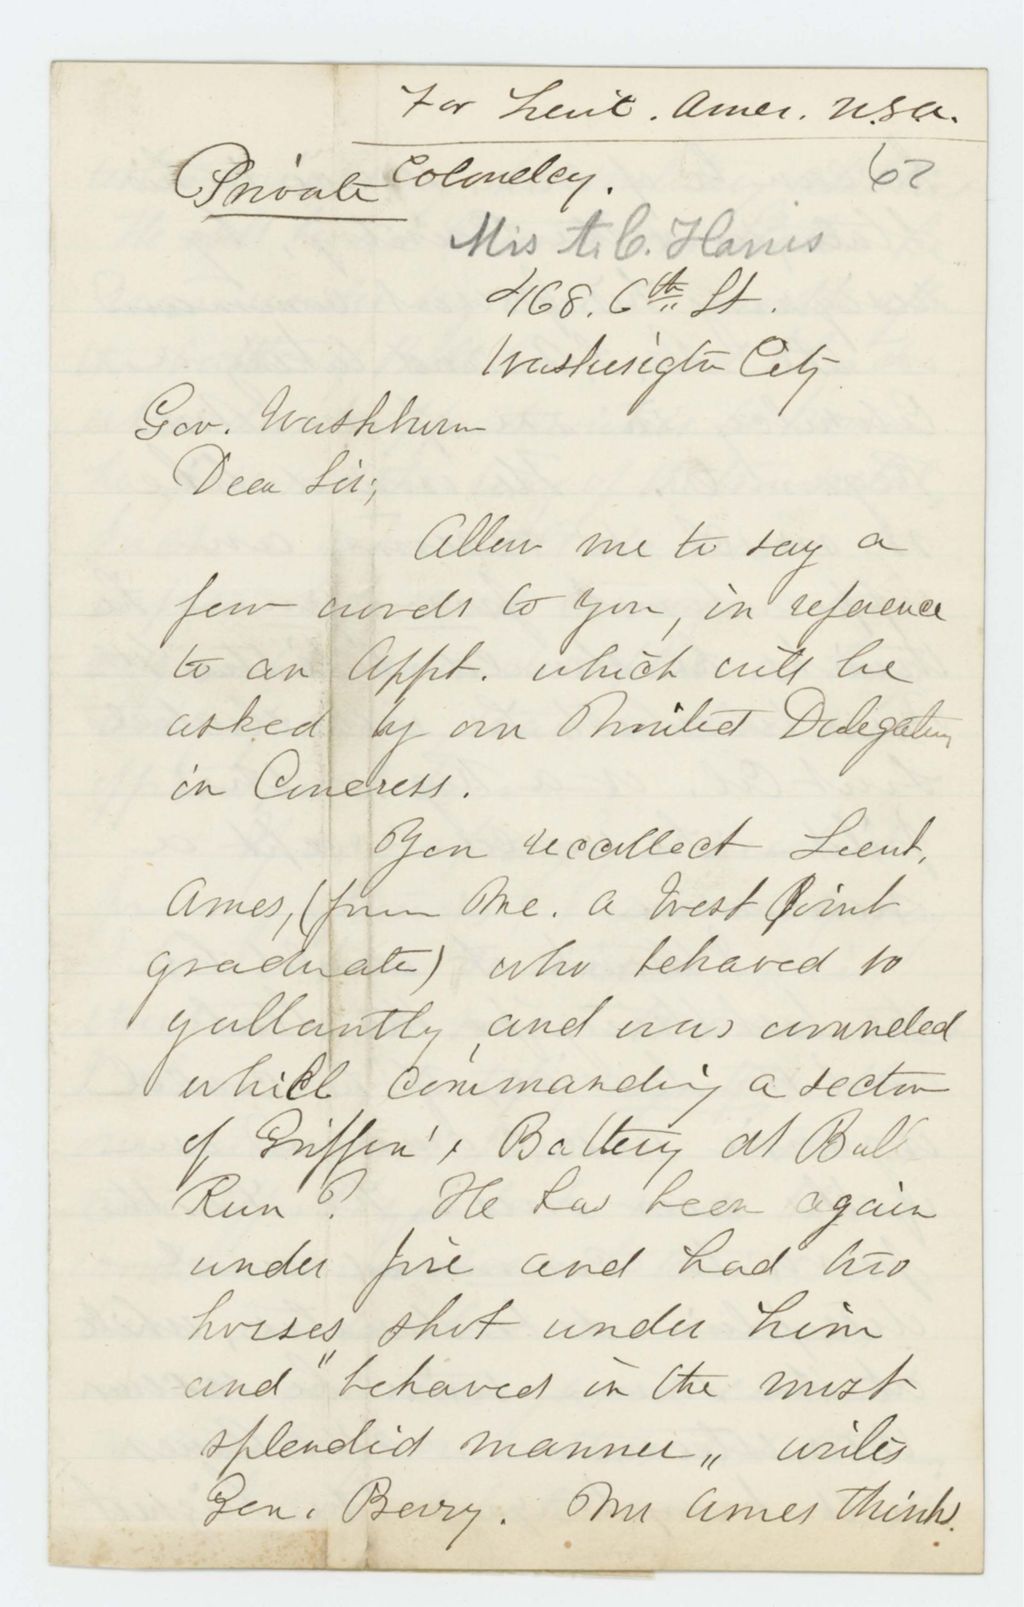 For Lieut. Ames. U.S.A.
Private Colonelcy.
62
Mrs A. C. Harris
468. 6th St.
Washington City
Gov. Washburn
Dear Sir;
Allow me to say a
few words to you, in reference
to an Appt. which will be
asked by our United Delegation
in Congress.
You recollect Lieut.
Ames, (from Me. a West Point
graduate) who behaved so
gallantly, and was wounded
while commanding a section
of Griffin's Battery at Bull
Run? He has been again
under fire and had two
horses shot under him
and "behaved in the most
splendid manner„ writes
Gen. Berry. Mr Ames thinks